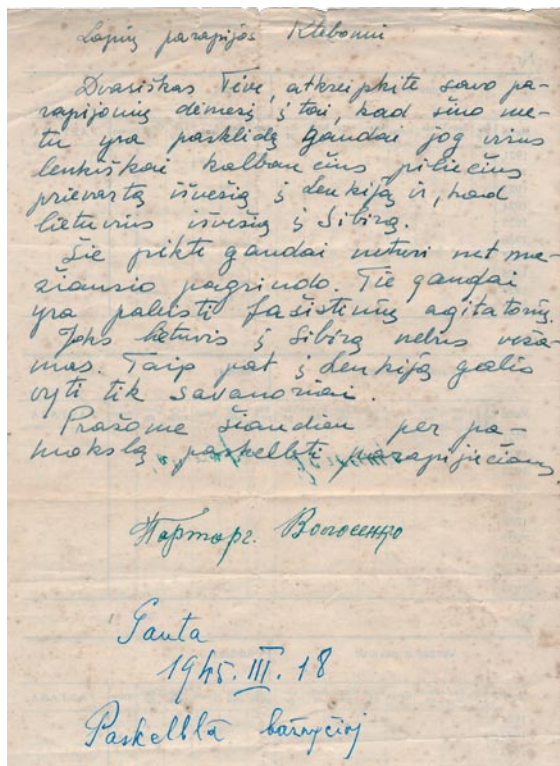 Lapių parapijos Klebonui
Dvasiškas Tėve, atkreipkite savo pa-
rapijonių dėmesį į tai, kad šiuo me-
tu yra pasklidę gandai jog visus
lenkiškai kalbančius piliečius
prievartą išvešią į Lenkiją ir, kad
lietuvius išvešią į Sibirą.
Šie pikti gandai neturi net ma-
žiausio pagrindo. Tie gandai
yra paleisti fašistinių agitatorių.
Joks lietuvis į Sibirą nebus veža-
mas. Taip pat į Lenkiją galės
vyti tik savanoriai.
Prašome šiandien per pa-
mokslą paskelbti parapijiečiams
Парторг. Волосенко
Gauta
1945.III.18
Paskelbta bažnyčioj